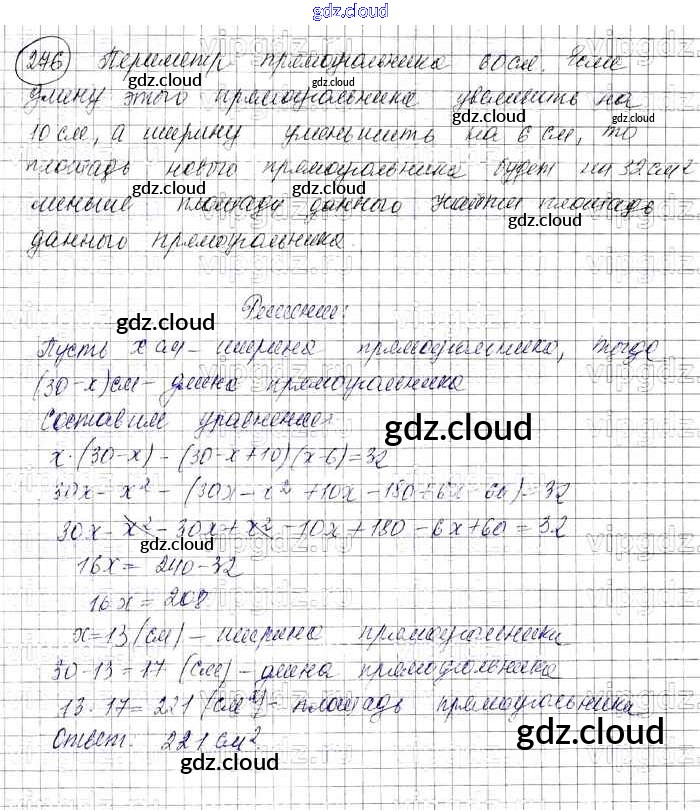 gdz.cloud
246 Периметр прямоугольника 60 см. Если
длину этого прямоугольника увеличить на
10 см, а ширину уменьшить на 6 см, то
площадь нового прямоугольника будет на 32 см²
меньше площади данного. Найти площадь
данного прямоугольника.
Решение:
Пусть x см - ширина прямоугольника, тогда
(30-x) см - длина прямоугольника
Составим уравнение:
x·(30-x) - (30-x+10)(x-6)=32
30x - x² - (30x - x² + 10x - 180 + 6x - 60) = 32
30x - x² - 30x + x² - 10x + 180 - 6x + 60 = 32
16x = 240-32
16x = 208
x=13 (см) - ширина прямоугольника
30-13=17 (см) - длина прямоугольника
13·17=221 (см²) - площадь прямоугольника
Ответ. 221 см²
gdz.cloud